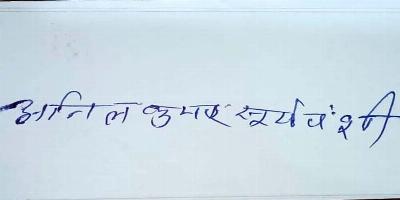 अनिल कुमार सूर्यवंशी